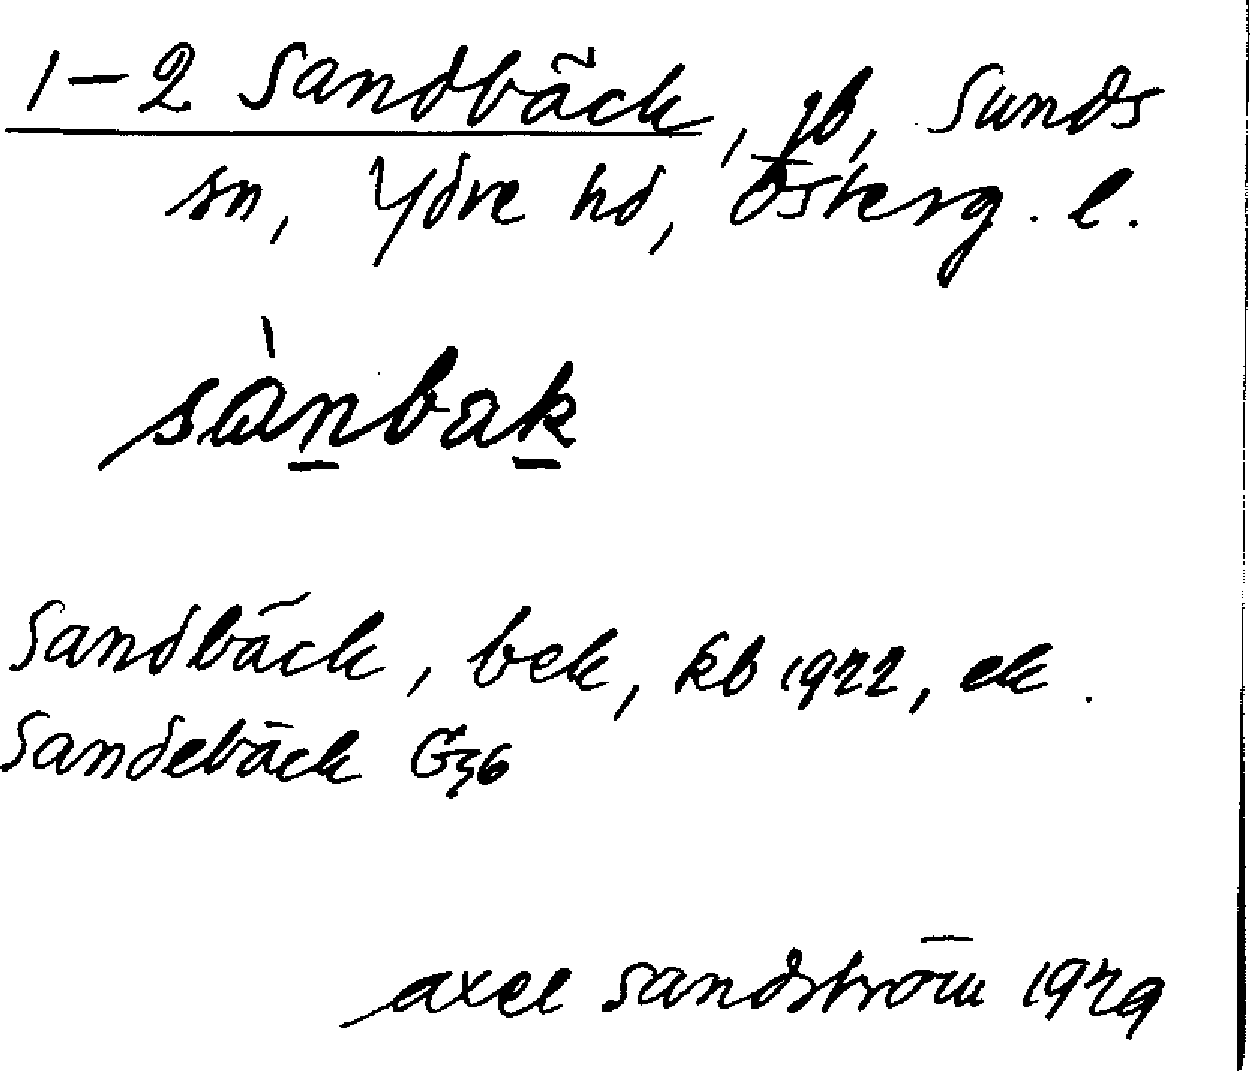 1–2 Sandbäck, jb, Sunds
sn, Ydre hd, Österg. l.
sànbak
Sandbäck, bek, kb 1922, ek.
Sandebäck G36
Axel Sandström 1929